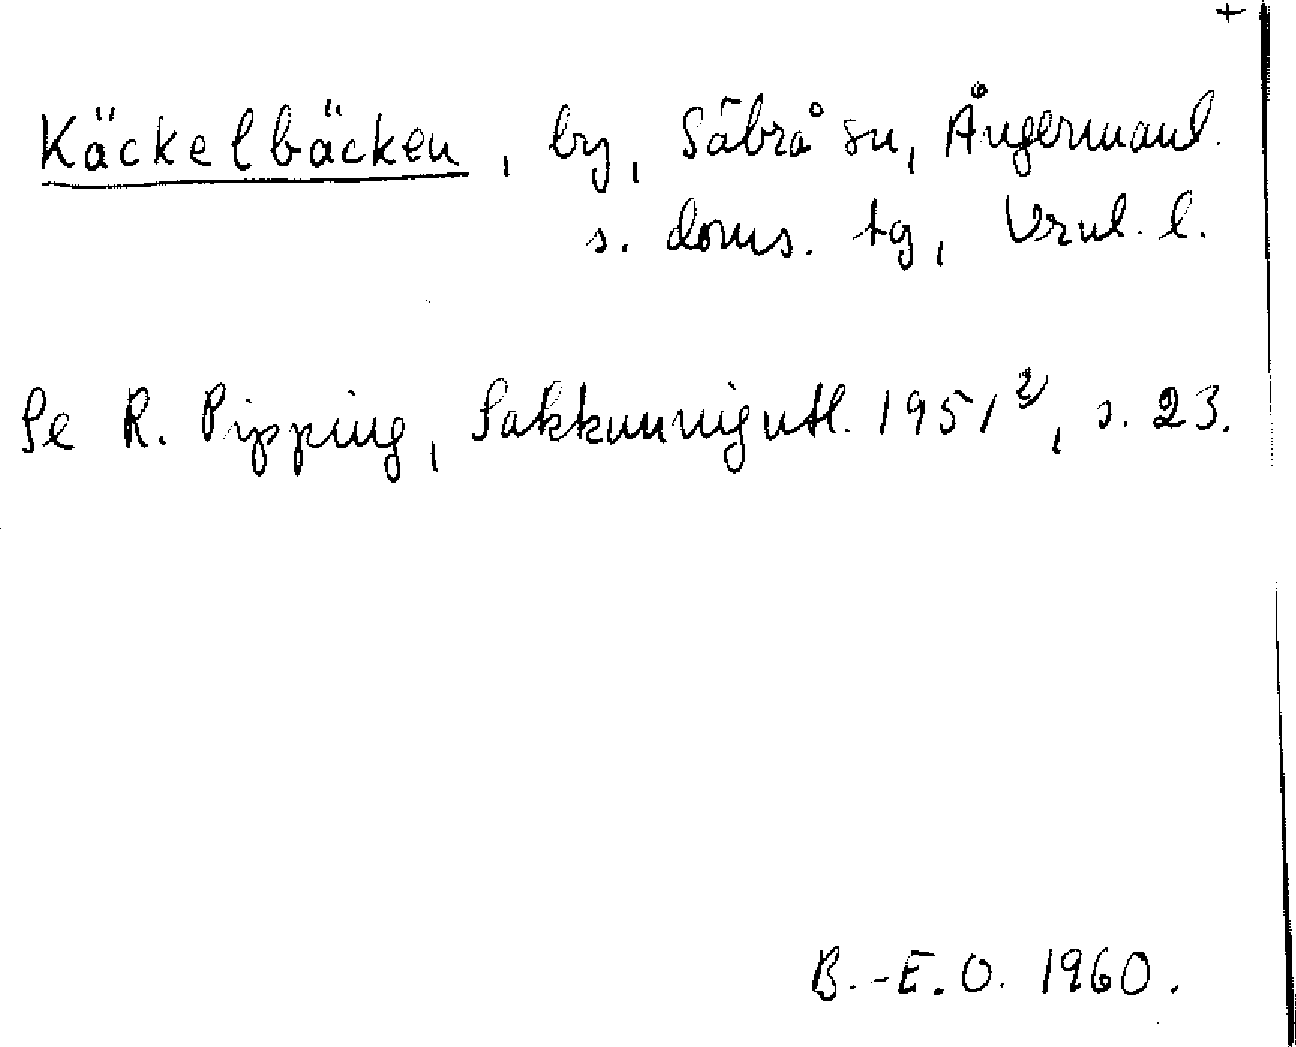 +
Käckelbäcken, by, Säbrå sn, Ångermanl.
s. doms. tg, Vrnl. l.
Se R. Pipping, Sakkunnigutl. 1951², s. 23.
B.-E.O. 1960.